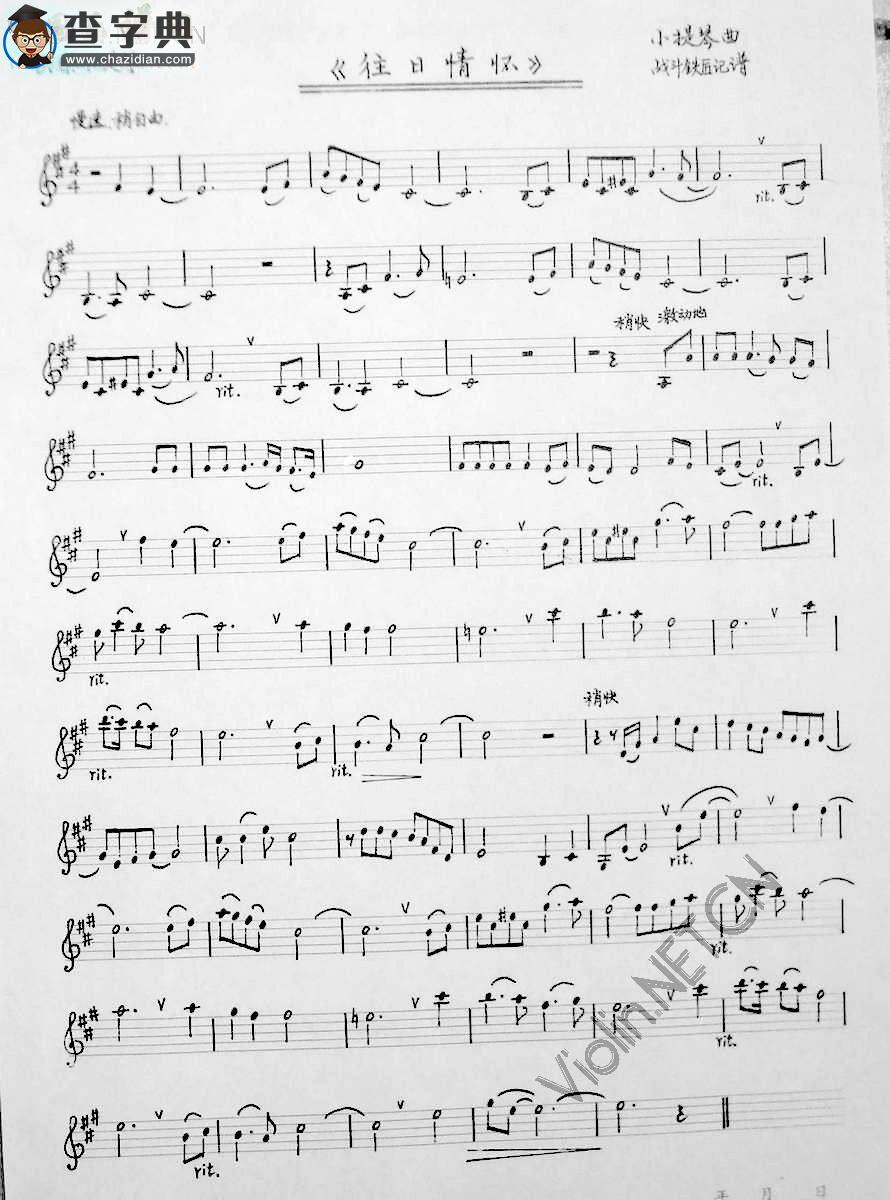 查字典
www.chazidian.com
《往日情怀》
小提琴曲
战斗铁匠记谱
慢速、稍自由.
4
4
rit.
稍快 激动地
rit.
rit.
rit.
稍快
rit. rit.
rit.
rit.
rit.
rit.
Violin.NET.CN
年 月 日